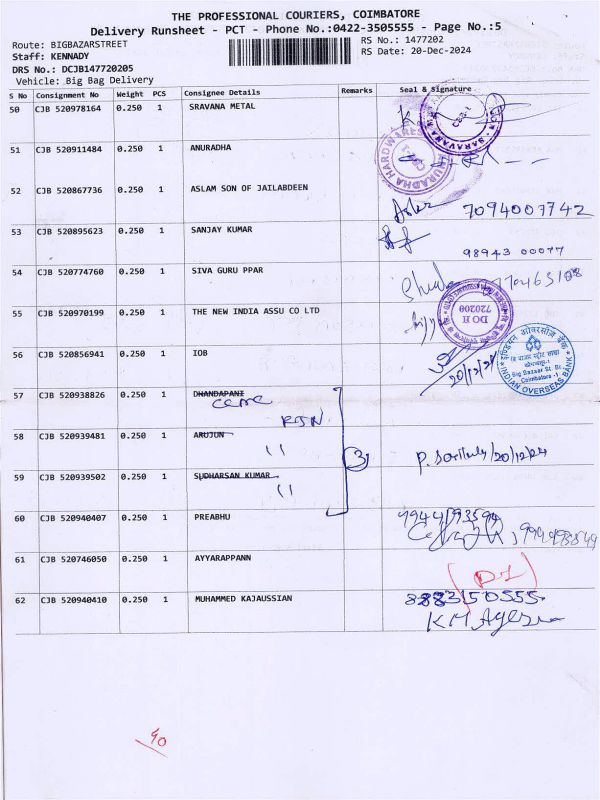 THE PROFESSIONAL COURIERS, COIMBATORE
Delivery Runsheet - PCT - Phone No.:0422-3505555 - Page No.:5
Route: BIGBAZARSTREET
RS No.: 1477202
Staff: KENNADY
RS Date: 20-Dec-2024
DRS No.: DCJB147720205
Vehicle: Big Bag Delivery
S No Consignment No Weight PCS Consignee Details Remarks Seal & Signature
50 CJB 520978164 0.250 1 SRAVANA METAL
51 CJB 520911484 0.250 1 ANURADHA
ANURADHA HARDWARES
52 CJB 520867736 0.250 1 ASLAM SON OF JAILABDEEN
7094007742
53 CJB 520895623 0.250 1 SANJAY KUMAR
98943 00077
54 CJB 520774760 0.250 1 SIVA GURU PPAR
55 CJB 520970199 0.250 1 THE NEW INDIA ASSU CO LTD
DO II
720200
56 CJB 520856941 0.250 1 IOB
20/12/24
इण्डियन ओवरसीज़ बैंक
Big Bazaar St. Br.
Coimbatore -1
INDIAN OVERSEAS BANK
57 CJB 520938826 0.250 1 DHANDAPANI
58 CJB 520939481 0.250 1 ARUJUN
"
3
20/12/24
59 CJB 520939502 0.250 1 SUDHARSAN KUMAR
"
60 CJB 520940407 0.250 1 PREABHU
61 CJB 520746050 0.250 1 AYYARAPPANN
62 CJB 520940410 0.250 1 MUHAMMED KAJAUSSIAN
8883150555